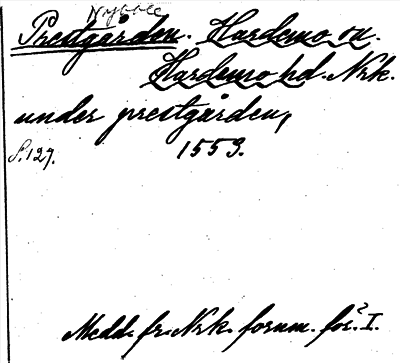 Nybble
Prestgården. Hardemo sn.
Hardemo hd. Nrk.
under prestgården,
S. 127. 1553.
Medd. fr. Nrk. fornm. för. I.